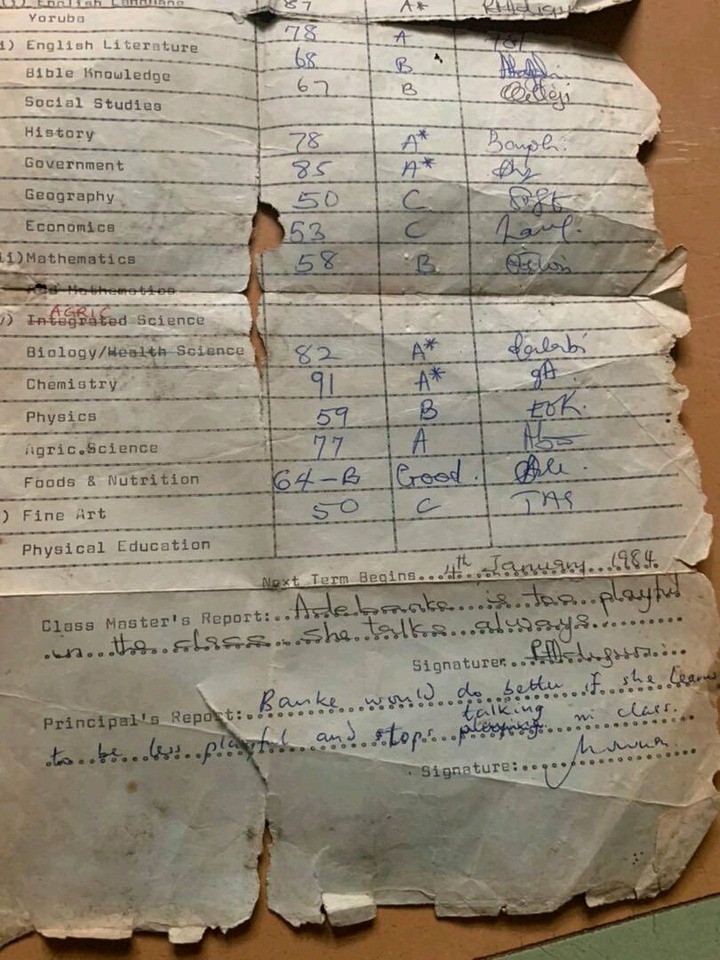 English Language 87 A*
Yoruba 78 A
English Literature 68 B
Bible Knowledge 67 B
Social Studies
History 78 A*
Government 85 A*
Geography 50 C
Economics 53 C
Mathematics 58 B
Add Mathematics
AGRIC
Integrated Science
Biology/Health Science 82 A*
Chemistry 91 A*
Physics 59 B
Agric.Science 77 A
Foods & Nutrition 64-B Good.
Fine Art 50 C
Physical Education
Next Term Begins...4th January 1984
Class Master's Report: Adebanke is too playful
in the class she talks always.
Signature:
Principal's Report: Banke would do better if she learns
to be less playful and stops playing talking in class.
Signature: